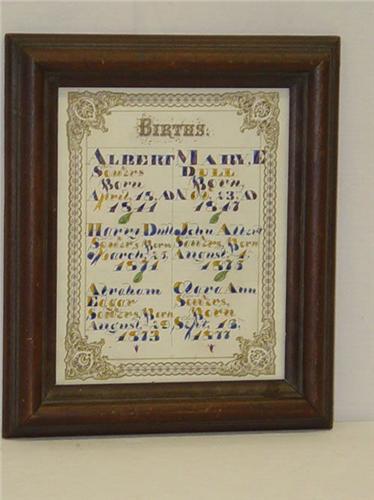 BIRTHS.
ALBERT
Sowers
Born
April, 18,
1844
MARY, E
DULL
Born,
23,
1847
Harry Dull
Sowers, Born
March, 25,
1871
John Albert
Sowers, Born
August, 1,
1875
Abraham
Edgar
Sowers, Born
August, 29,
1873
Clara Ann
Sowers,
Born
Sept. 13,
1877